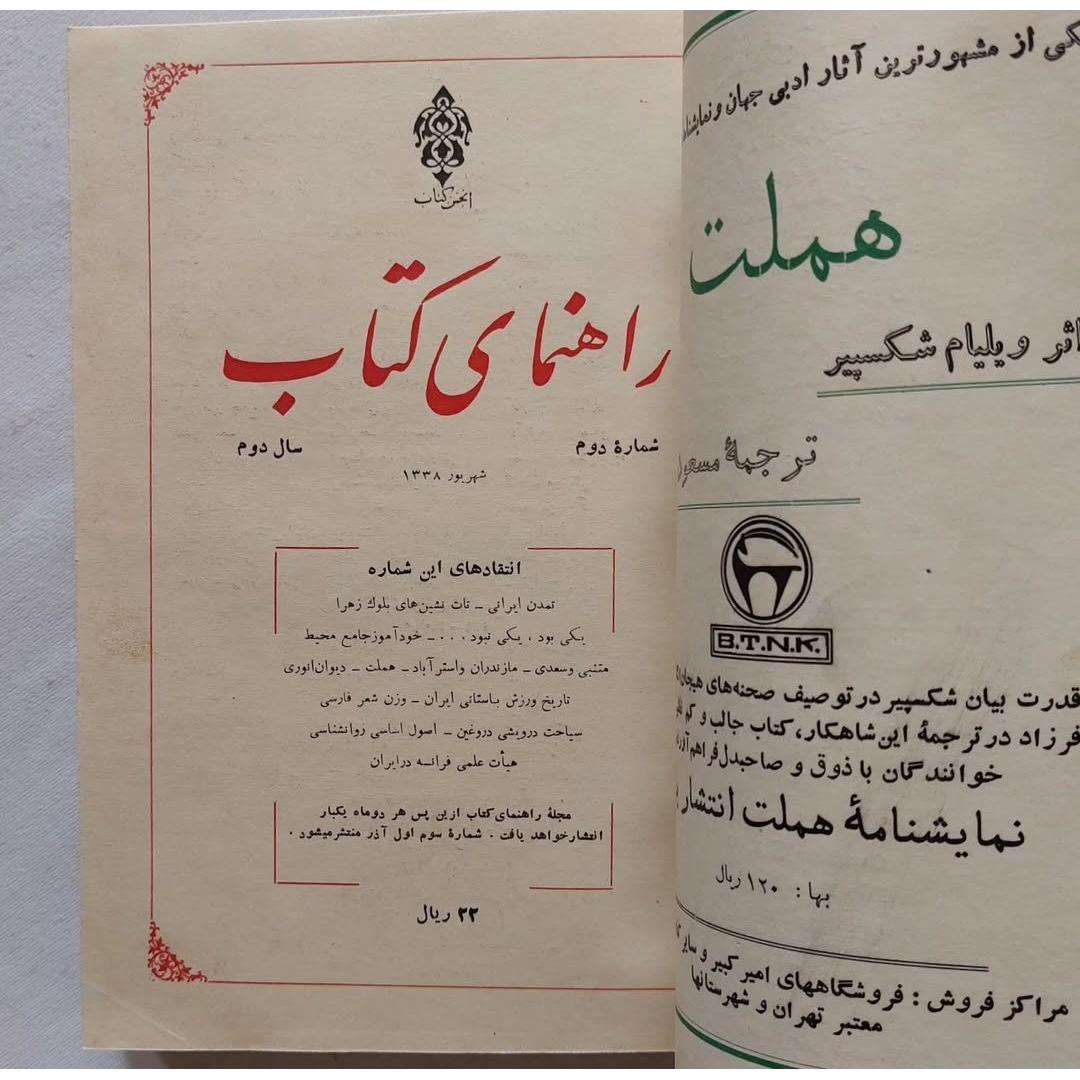 انجمن کتاب
راهنمای کتاب
شمارهٔ دوم
سال دوم
شهریور ۱۳۳۸
انتقادهای این شماره
تمدن ایرانی ـ تات نشین‌های بلوك زهرا
یکی بود ، یکی نبود . . . ـ خودآموز جامع محیط
متنبی وسعدی ـ مازندران واسترآباد ـ هملت ـ دیوان انوری
تاریخ ورزش باستانی ایران ـ وزن شعر فارسی
سیاحت درویشی دروغین ـ اصول اساسی روانشناسی
هیأت علمی فرانسه درایران
مجلهٔ راهنمای کتاب ازین پس هر دوماه یکبار
انتشار خواهد یافت . شمارهٔ سوم اول آذر منتشر میشود .
۲۲ ریال
از مشهورترین آثار ادبی جهان و
هملت
اثر ویلیام شکسپیر
ترجمهٔ
B.T.N.K.
قدرت بیان شکسپیر در توصیف صحنه‌های
فرزاد در ترجمهٔ این شاهکار، کتاب جالب و کم
خوانندگان با ذوق و صاحبدل فراهم
نمایشنامهٔ هملت
بها : ۱۲۰ ریال
مراکز فروش : فروشگاههای امیر کبیر و سایر
معتبر تهران و شهرستانها